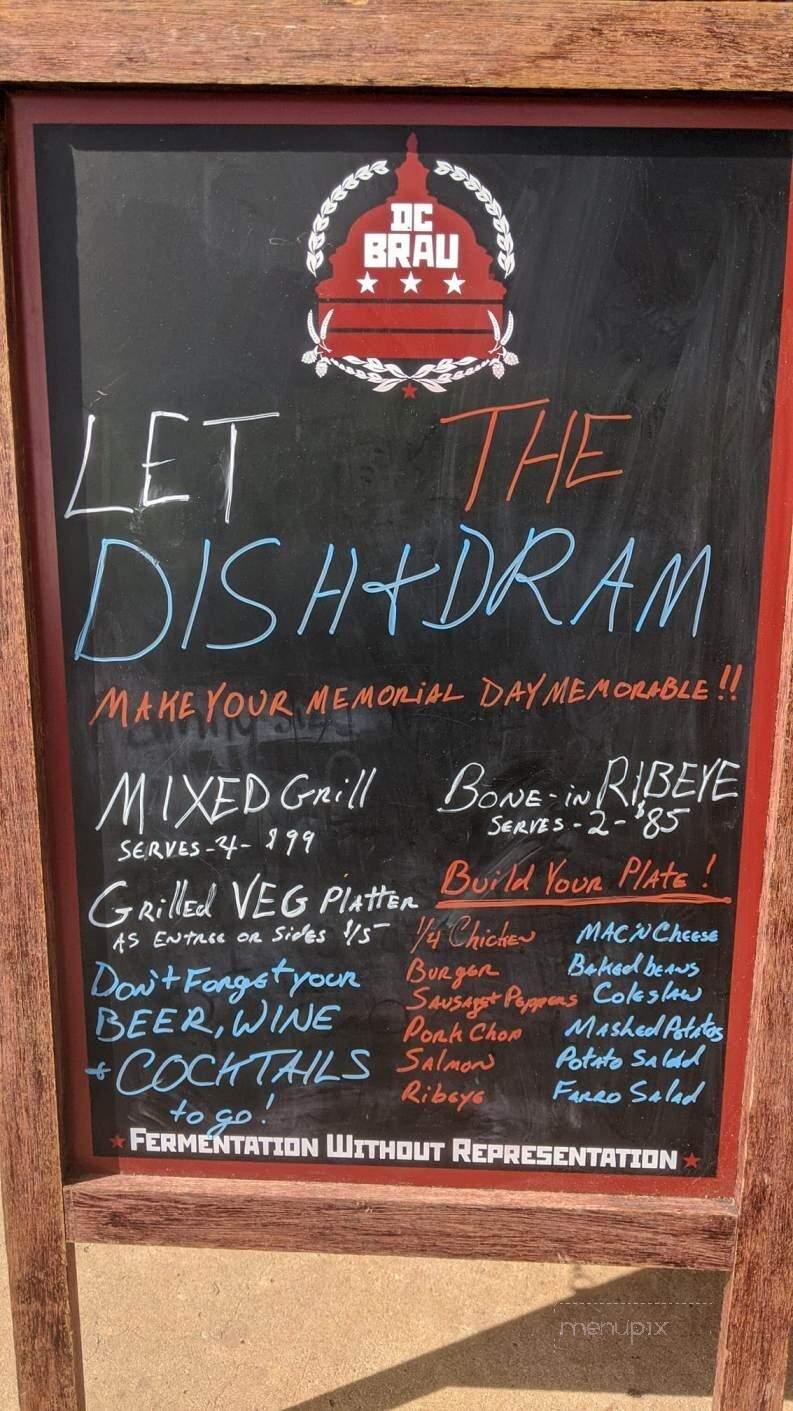 DC
BRAU
LET THE
DISH & DRAM
MAKE YOUR MEMORIAL DAY MEMORABLE!!
MIXED Grill
SERVES-4- $99
BONE-IN RIBEYE
SERVES-2- $85
Grilled VEG Platter
AS ENTREE OR SIDES $15
Don't Forget your
BEER, WINE
+ COCKTAILS
to go!
Build Your Plate!
1/4 Chicken
Burger
Sausage + Peppers
Pork Chop
Salmon
Ribeye
MAC'N Cheese
Baked beans
Coleslaw
Mashed Potatos
Potato Salad
Farro Salad
FERMENTATION WITHOUT REPRESENTATION
menupix